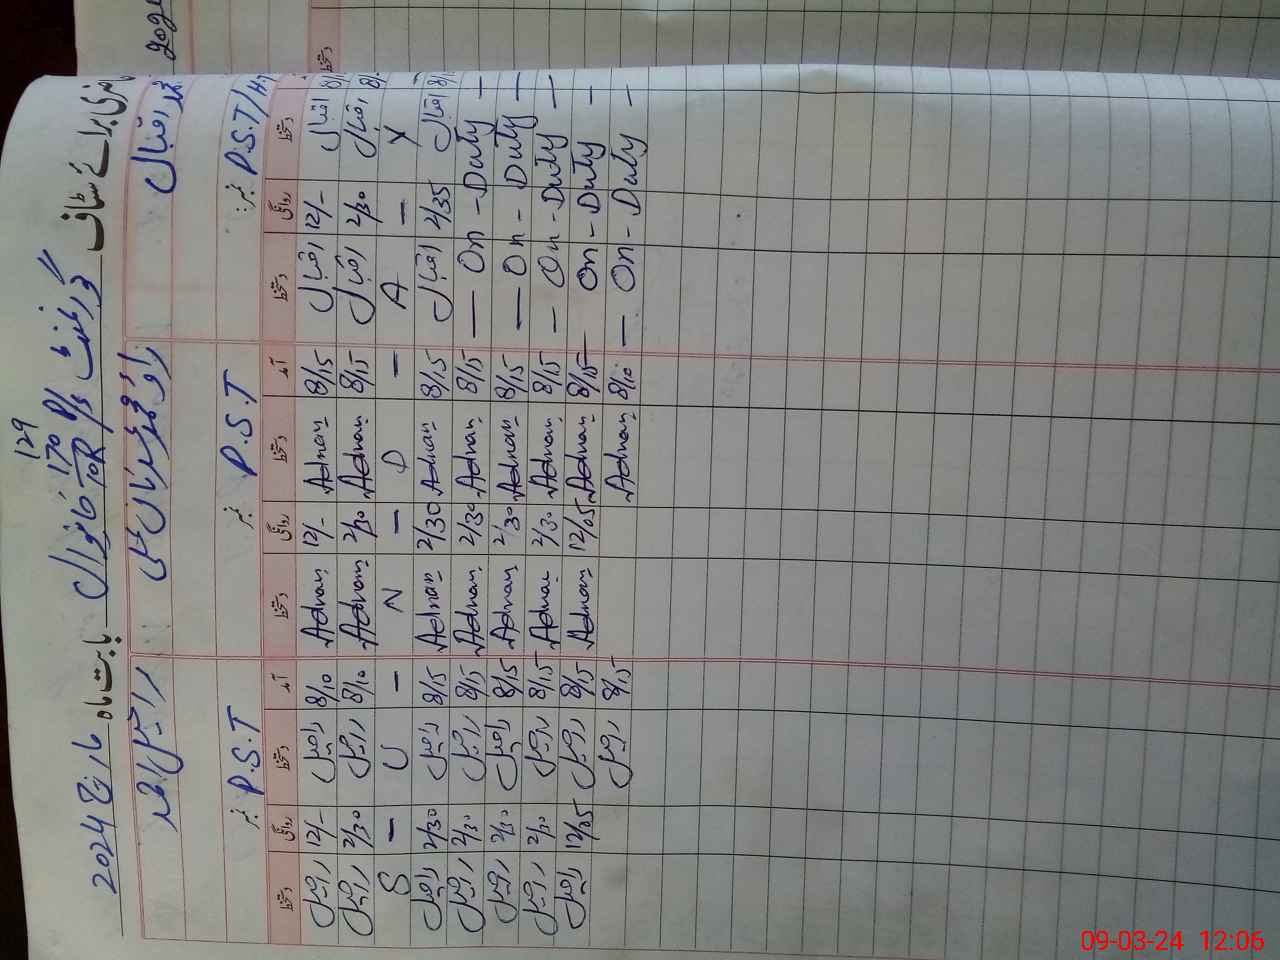 گورنمنٹ P/S 170/10R خانیوال بابت ماہ مارچ 2024
129
محمد اقبال
راحیل احمد
P.S.T/H.T
نمبر P.S.T
نمبر P.S.T
دستخط روانگی دستخط آمد دستخط روانگی دستخط آمد دستخط روانگی دستخط
اقبال 12/- اقبال 8/15 Adnan 12/- Adnan 8/10 راحیل 12/- راحیل
اقبال 2/30 اقبال 8/15 Adnan 2/30 Adnan 8/10 راحیل 2/30 راحیل
Y — A — D — N — U — S
اقبال 2/35 اقبال 8/15 Adnan 2/30 Adnan 8/15 راحیل 2/30 راحیل
— On - Duty — 8/15 Adnan 2/30 Adnan 8/15 راحیل 2/30 راحیل
— On - Duty — 8/15 Adnan 2/30 Adnan 8/15 راحیل 2/30 راحیل
— On - Duty — 8/15 Adnan 2/30 Adnan 8/15 راحیل 2/30 راحیل
— On - Duty — 8/15 Adnan 12/05 Adnan 8/15 راحیل 12/05 راحیل
— On - Duty — 8/10 Adnan 8/15 راحیل
09-03-24 12:06